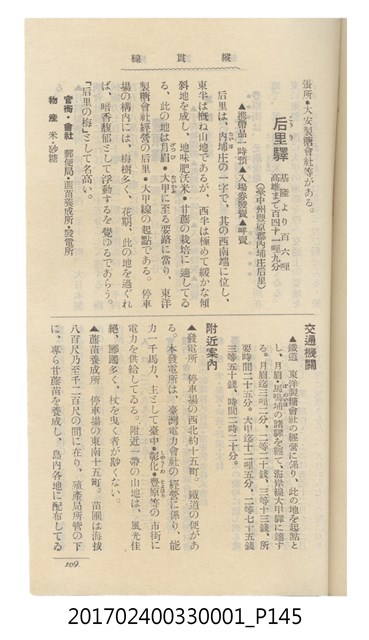 縱貫線
張所・大安製糖會社等がある。
后里驛
基隆より百六哩
高雄まで百四十一哩九分
(臺中州豐原郡內埔庄后里)
▲携帶品一時預▲入場券發賣▲呼賣
后里は、內埔庄の一字で、其の西南端に位し、
東半は概ね山地であるが、西半は極めて緩かな傾
斜地を成し、地味肥沃米・甘蔗の栽培に適してゐ
る、此の地は月眉・大甲に至る要路に當り、東洋
製糖會社經營の后里・大甲線の起點である。停車
場の構內には、梅樹多く、花期、此の地を過ぐれ
ば、暗香馥郁として浮動するを覺ゆるであらう。
「后里の梅」として名高い。
官衙・會社 郵便局・蔗苗養成所・發電所
物產 米・砂糖
交通機關
▲鐵道 東洋製糖會社の經營に係り、此の地を起點と
し、月眉・馬鳴埔の諸驛を經て、海岸線大甲驛に達す
る。月眉迄三哩二分、二等二十錢、三等十三錢、所
要時間二十五分。大甲迄十二哩五分、二等七十五錢
三等五十錢、時間二時二十分。
附近案內
▲發電所 停車場の西北約十五町。鐵道の便があ
る。本發電所は、臺灣電力會社の經營に係り、能
力一千馬力、主として臺中・彰化・豐原等の市街に
電力を供給してゐる。附近一帶の山地は、風光佳
絕、勝趣多く、杖を曳く者が尠くない。
▲蔗苗養成所 停車場の東南十五町。苗圃は海拔
八百尺乃至千二百尺の間に在り、殖產局所管の下
に、專ら甘蔗苗を養成し、島內各地に配布してゐ
109
201702400330001_P145